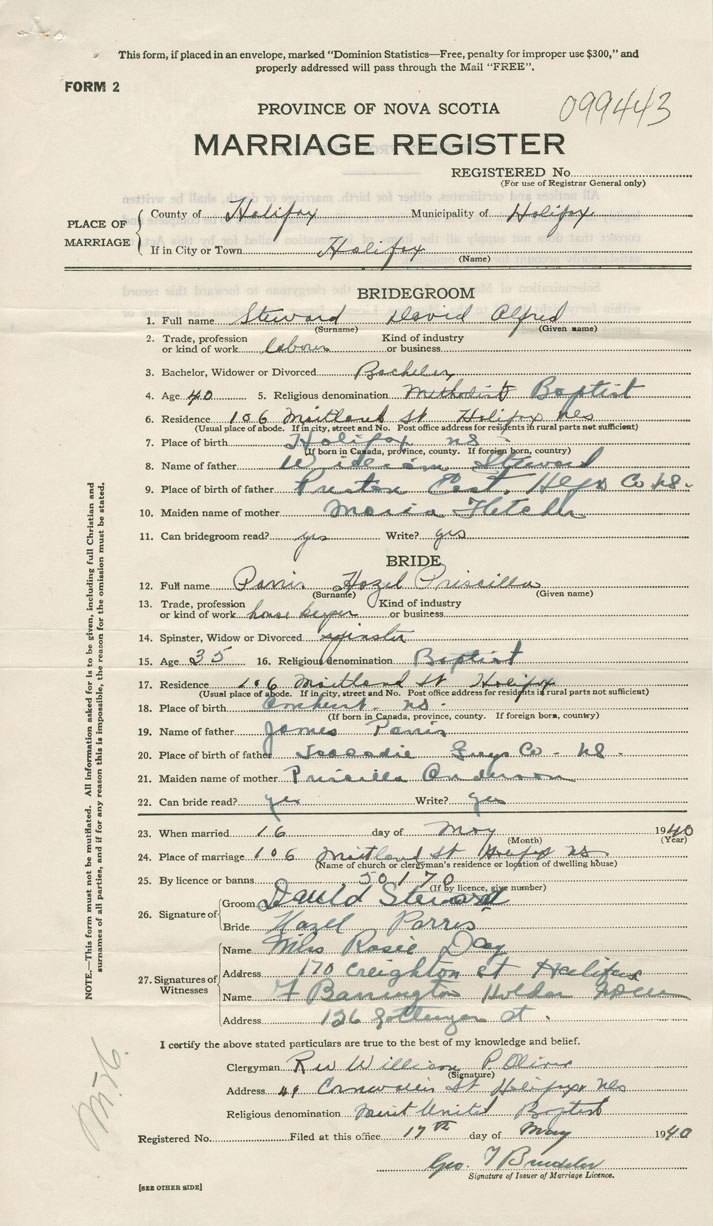 This form, if placed in an envelope, marked "Dominion Statistics—Free, penalty for improper use $300," and
properly addressed will pass through the Mail "FREE".
FORM 2
PROVINCE OF NOVA SCOTIA
099443
MARRIAGE REGISTER
REGISTERED No
(For use of Registrar General only)
PLACE OF MARRIAGE
County of Halifax Municipality of Halifax
If in City or Town Halifax
(Name)
BRIDEGROOM
1. Full name Steward David Alfred
(Surname) (Given name)
2. Trade, profession or kind of work labourer Kind of industry or business
3. Bachelor, Widower or Divorced Bachelor
4. Age 40 5. Religious denomination Methodist Baptist
6. Residence 106 Maitland St Halifax NS
(Usual place of abode. If in city, street and No. Post office address for residents in rural parts not sufficient)
7. Place of birth Halifax NS
(If born in Canada, province, county. If foreign born, country)
8. Name of father William Steward
9. Place of birth of father Preston East, Hlfx Co NS.
10. Maiden name of mother Maria Fletcher
11. Can bridegroom read? yes Write? yes
BRIDE
12. Full name Parris Hazel Priscilla
(Surname) (Given name)
13. Trade, profession or kind of work house keeper Kind of industry or business
14. Spinster, Widow or Divorced spinster
15. Age 35 16. Religious denomination Baptist
17. Residence 106 Maitland St Halifax
(Usual place of abode. If in city, street and No. Post office address for residents in rural parts not sufficient)
18. Place of birth Amherst NS.
(If born in Canada, province, county. If foreign born, country)
19. Name of father James Parris
20. Place of birth of father Tracadie Guys Co NS.
21. Maiden name of mother Priscilla Anderson
22. Can bride read? yes Write? yes
23. When married 16 day of May 1940
(Month) (Year)
24. Place of marriage 106 Maitland St Halifax NS.
(Name of church or clergyman's residence or location of dwelling house)
25. By licence or banns 50170
(If by licence, give number)
26. Signature of
Groom David Steward
Bride Hazel Parris
27. Signatures of Witnesses
Name Mrs Rosie Day
Address 170 Creighton St Halifax
Name F Barrington Holder
Address 126 Gottingen St.
I certify the above stated particulars are true to the best of my knowledge and belief.
Clergyman Rev William P Oliver
(Signature)
Address Cornwallis St Halifax NS
Religious denomination United Baptist
Registered No. Filed at this office 17th day of May 1940
Geo.
Signature of Issuer of Marriage Licence.
[SEE OTHER SIDE]
NOTE.—This form must not be mutilated. All information asked for is to be given, including full Christian and
surnames of all parties, and if for any reason this is impossible, the reason for the omission must be stated.